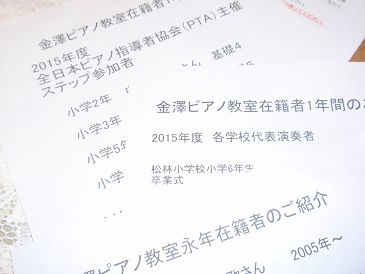 金澤ピアノ教室在籍者1
2015年度
全日本ピアノ指導者協会(PTA)主催
ステップ参加者
さん 基礎4
小学2年
小学3年
小学5年
小学
金澤ピアノ教室在籍者1年間の
2015年度 各学校代表演奏者
松林小学校小学6年生
卒業式
澤ピアノ教室永年在籍者のご紹介
さん 2005年~